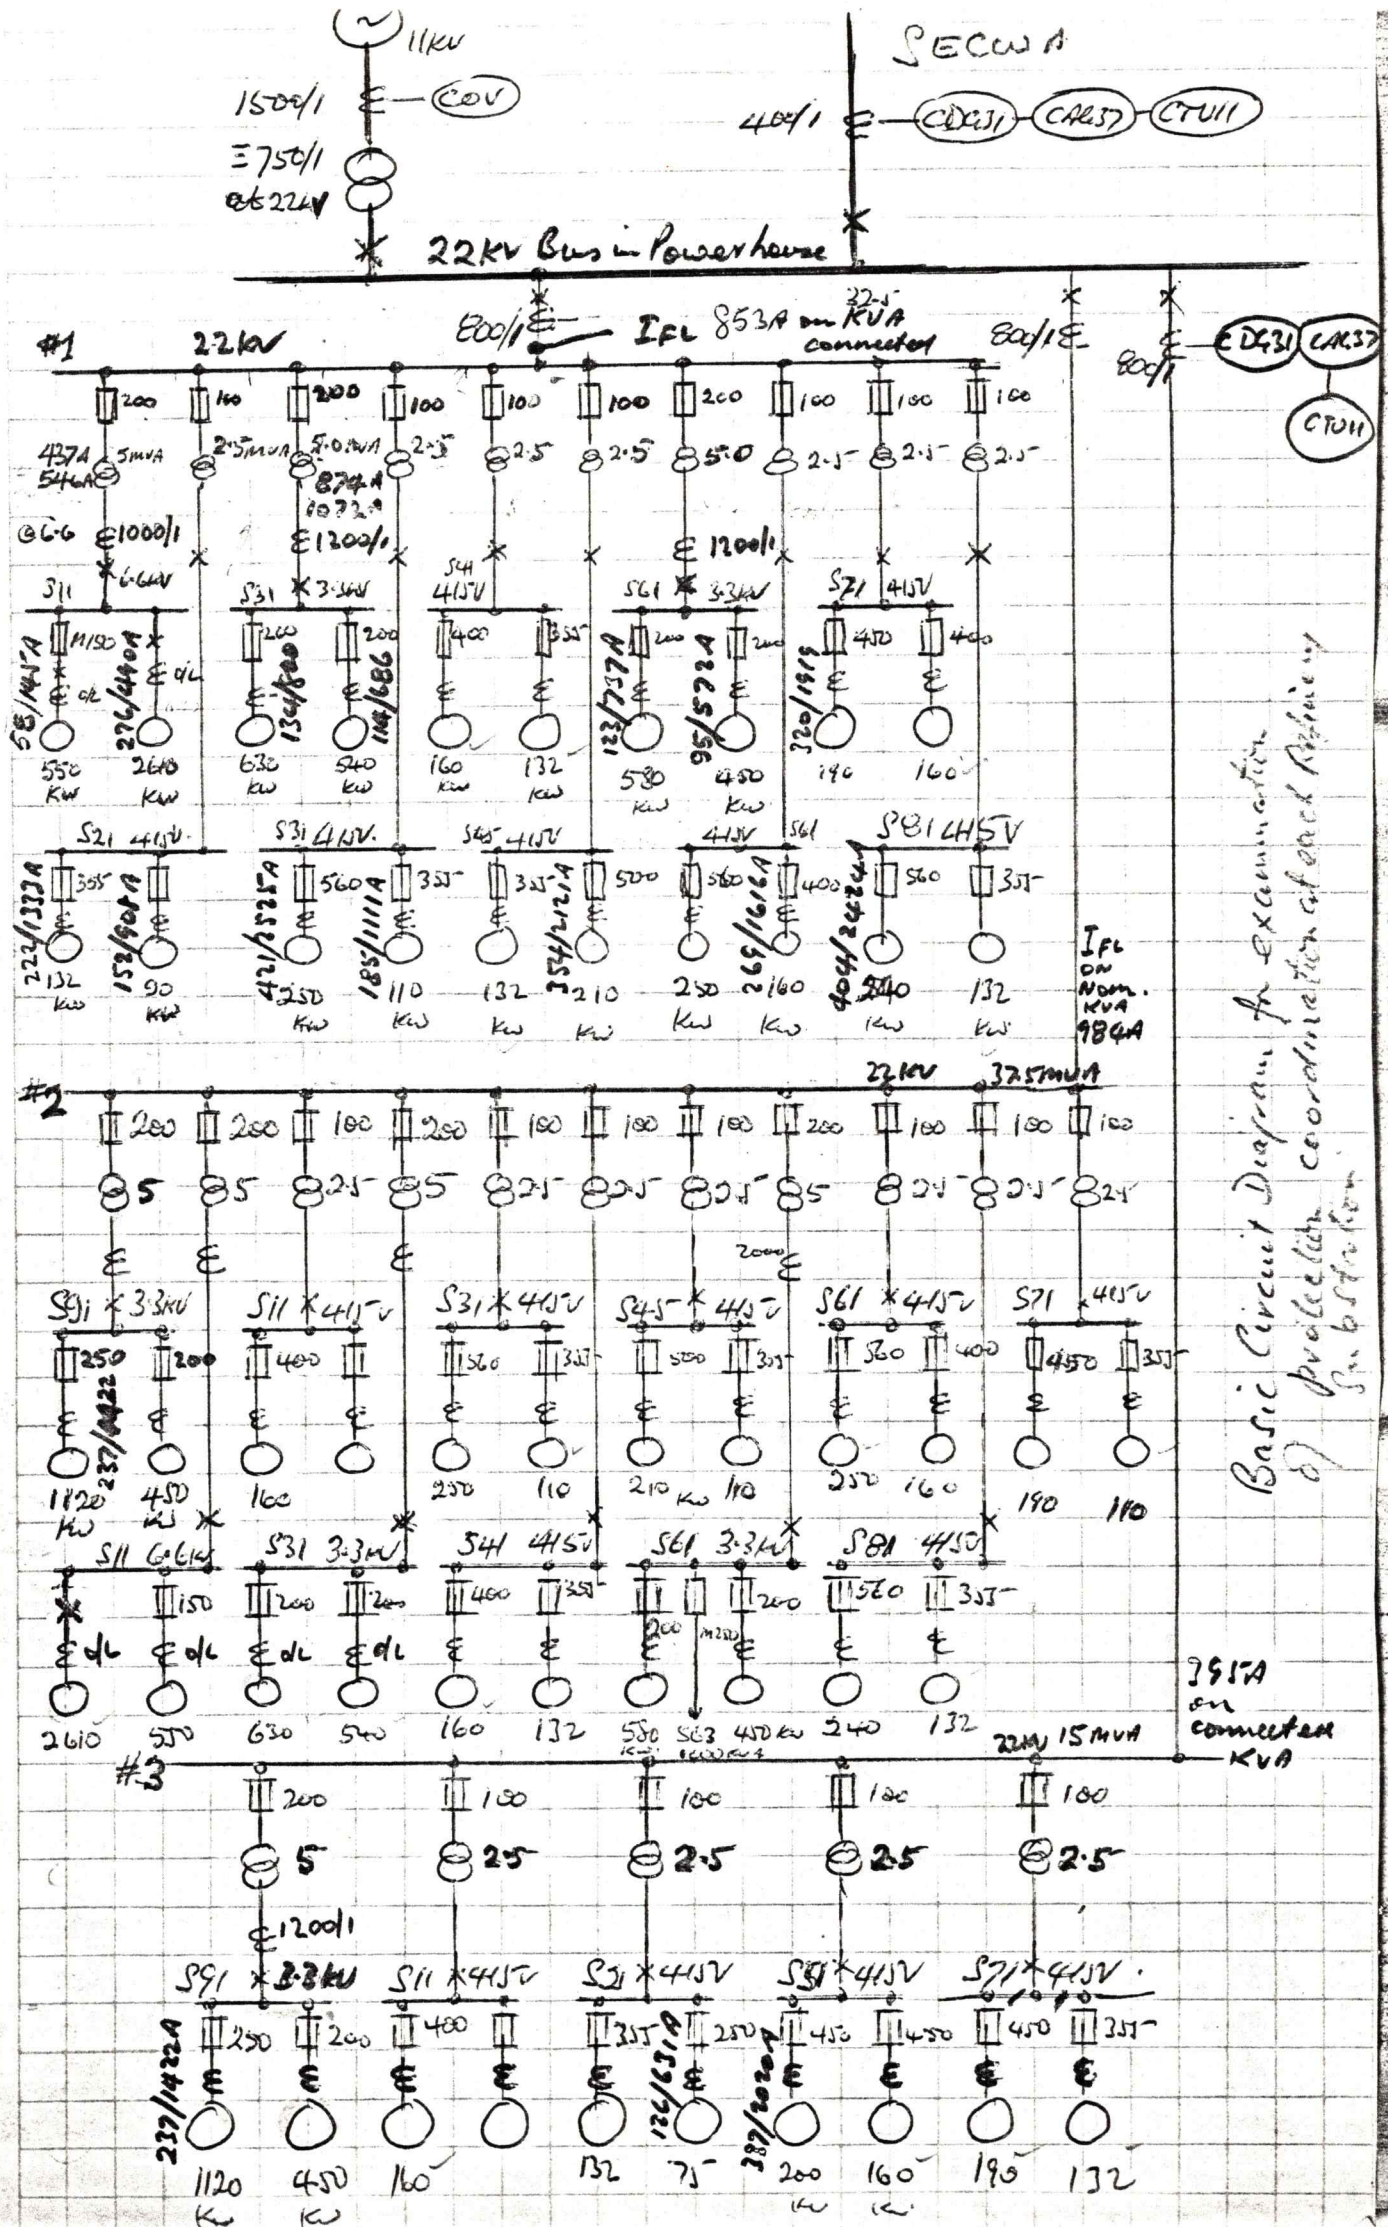 11KV
SECWA
1500/1 COV
400/1 CDG31 CAG37 CTU11
≡750/1
at 22KV
22KV Bus in Powerhouse
800/1 IFL 853A on 32.5 KVA connected 800/1 800/1 CDG31 CAG37
CTU11
#1 22KV
200 100 200 100 100 100 200 100 100 100
437A 5MVA 2.5MVA 5.0MVA 2.5 2.5 2.5 5.0 2.5 2.5 2.5
546A 874A
1072A
@6.6 1000/1 1200/1 1200/1
S11 6.6KV S31 3.3KV S41 415V S61 3.3KV S71 415V
M150 200 200 400 355 200 200 450 400
o/L o/L
58/145A 276/440A 134/800 114/686 123/737A 95/572A 320/1919
550 2610 630 540 160 132 580 450 190 160
KW KW KW KW KW KW KW KW
S21 415V S31 415V S45 415V 415V S61 S81 415V
355 560 355 355 500 560 400 560 355
222/1333A 152/908A 421/2525A 185/1111A 354/2121A 269/1616A 404/2424A
132 90 250 110 132 210 250 160 240 132
KW KW KW KW KW KW KW KW KW KW
IFL
ON
NOM.
KVA
984A
#2 22KV 37.5MVA
200 200 100 200 100 100 100 200 100 100 100
5 5 2.5 5 2.5 2.5 2.5 5 2.5 2.5 2.5
2000
S91 3.3KV S11 415V S31 415V S45 415V S61 415V S71 415V
250 200 400 560 355 500 355 560 400 450 355
237/1422
1120 450 160 250 110 210 KW 110 250 160 190 110
KW KW
S11 6.6KV S31 3.3KV S41 415V S61 3.3KV S81 415V
150 200 200 400 355 200 M250 200 560 355
o/L o/L o/L o/L
2610 550 630 540 160 132 580 S63 450KW 240 132
395A
on
connected
KVA
#3 22KV 15MVA
200 100 100 100 100
5 2.5 2.5 2.5 2.5
1200/1
S91 3.3KV S11 415V S21 415V S51 415V S71 415V
250 200 400 355 250 450 450 450 355
237/1422A 126/631A
1120 450 160 132 75 200 160 190 132
KW KW KW KW
Basic Circuit Diagram for examination
of protection coordination at each Refinery
Substation